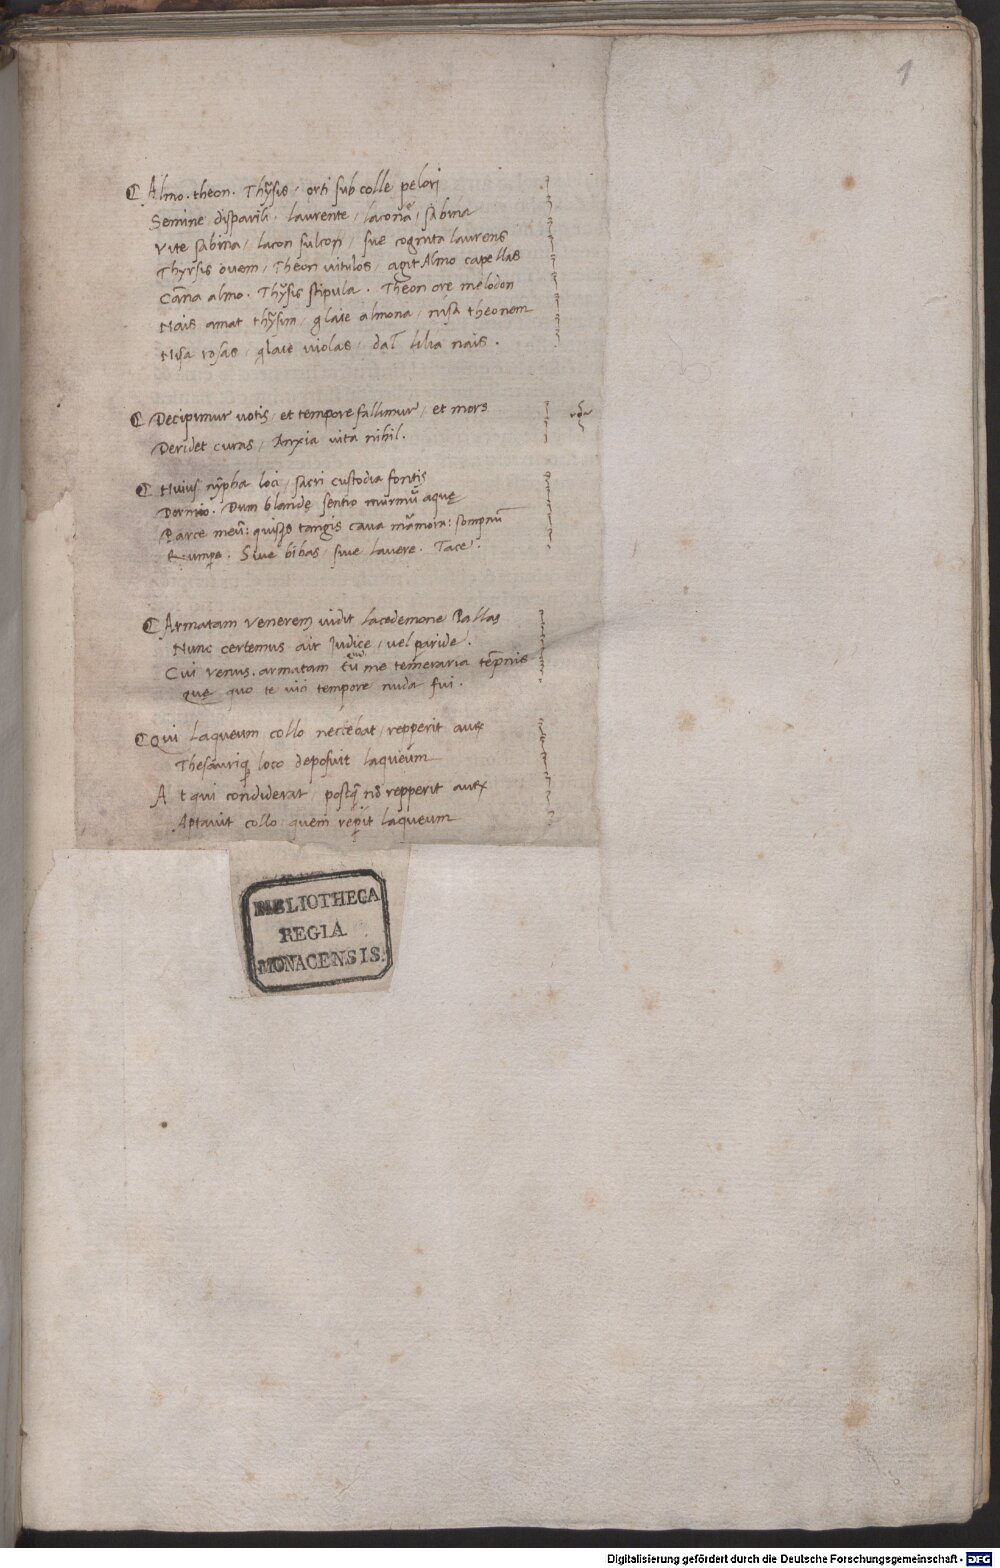 1
Almo. theon. Thyrsis, orti sub colle pelori
Semine disparili, laurente, lacona, sabina
Vite sabina, lacon sulcon, sue cognita laurens
Thyrsis ovem, Theon vitulos, agit Almo capellas
Cana almo. Thysis stipula. Theon ore melodon
Nais amat thysim, glaie almona, nisa theonem
Nisa rosas, glaie violas, dat lilia nais.
Decipimur votis, et tempore fallimur, et mors
Deridet curas, Anxia vita nihil.
Huius nypha loci, sacri custodia fontis
Dormio. Dum blandę sentio murmur aquę
Parce meu: quisqs tangis cava marmora: sompnu
Rumpe. Sive bibas, sive lavere. Tace.
Armatam venerem vidit lacedemone Pallas
Nunc certemus ait Iudice, vel paride.
Cui venus. armatam tu me temeraria tepnis
Quę quo te vici tempore nuda fui.
Qui laqueum collo nectebat, repperit aux
Thesauriq loco deposuit laqueum
At qui condiderat, postq no repperit aux
Aptavit collo quem reperit laqueum
BIBLIOTHECA
REGIA
MONACENSIS.
Digitalisierung gefördert durch die Deutsche Forschungsgemeinschaft - DFG